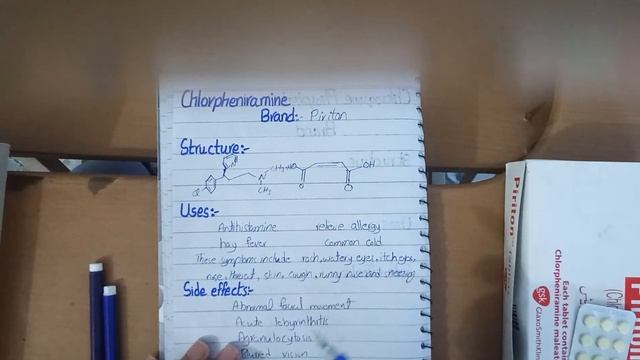 Chlorpheniramine
Brand:- Piriton
Structure:-
CH3
HO
OH
Cl
N
CH3
O
O
Uses:-
Antihistamine relieve allergy
hay fever Common cold
These symptoms include rash, watery eyes, itchy eyes,
nose, throat, skin, cough, runny nose and sneezing
Side effects:-
Abnormal facial movement
Acute labyrinthitis
Agranulocytosis
Blurred vision
Piriton
Each tablet contains
Chlorpheniramine maleate
gsk GlaxoSmithKline